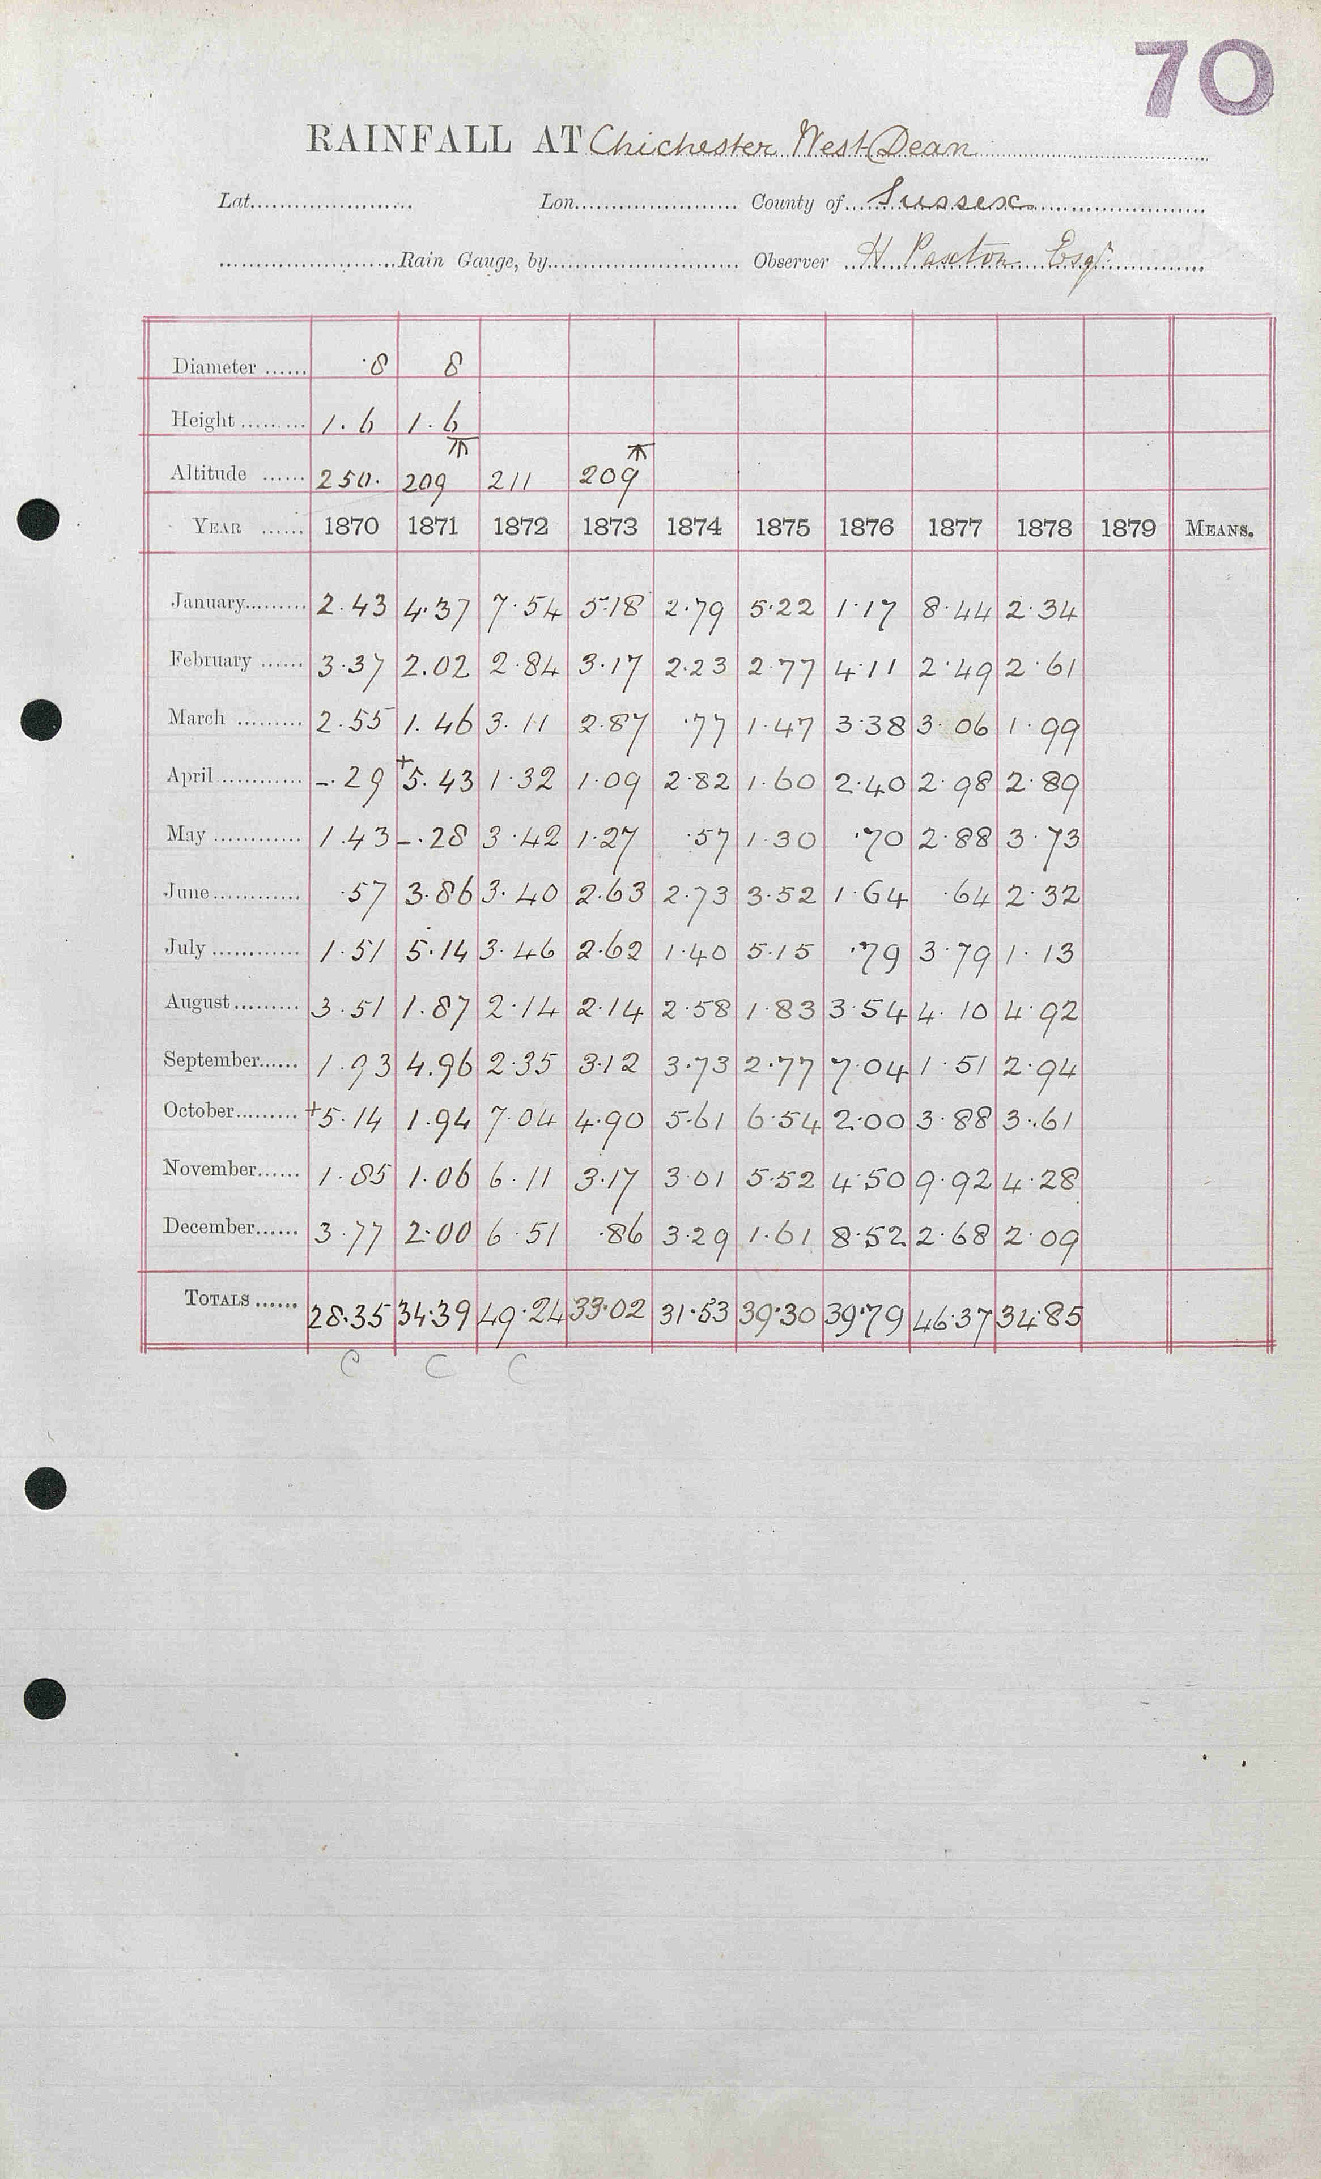 70
RAINFALL AT Chichester West Dean
Lat. Lon. County of Sussex
Rain Gauge, by Observer H Paxton Esqr
Diameter 8 8
Height 1.6 1.6
Altitude 250. 209 211 209
YEAR 1870 1871 1872 1873 1874 1875 1876 1877 1878 1879 MEANS.
January 2.43 4.37 7.54 5.18 2.79 5.22 1.17 8.44 2.34
February 3.37 2.02 2.84 3.17 2.23 2.77 4.11 2.49 2.61
March 2.55 1.46 3.11 2.87 .77 1.47 3.38 3.06 1.99
April -.29 +5.43 1.32 1.09 2.82 1.60 2.40 2.98 2.89
May 1.43 -.28 3.42 1.27 .57 1.30 .70 2.88 3.73
June .57 3.86 3.40 2.63 2.73 3.52 1.64 .64 2.32
July 1.51 5.14 3.46 2.62 1.40 5.15 .79 3.79 1.13
August 3.51 1.87 2.14 2.14 2.58 1.83 3.54 4.10 4.92
September 1.93 4.96 2.35 3.12 3.73 2.77 7.04 1.51 2.94
October +5.14 1.94 7.04 4.90 5.61 6.54 2.00 3.88 3.61
November 1.85 1.06 6.11 3.17 3.01 5.52 4.50 9.92 4.28
December 3.77 2.00 6.51 .86 3.29 1.61 8.52 2.68 2.09
TOTALS 28.35 34.39 49.24 33.02 31.53 39.30 39.79 46.37 34.85
C C C